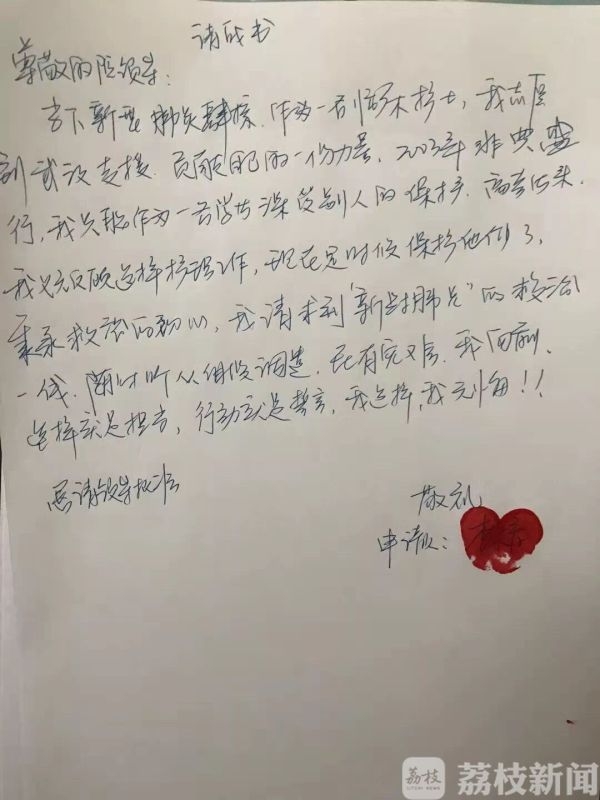 请战书
尊敬的院领导：
当下新型肺炎肆虐。作为一名临床护士，我志愿
到武汉支援。贡献自己的一份力量。2003年非典盛
行，我只能作为一名学生深受别人的保护。高考后来，
我义无反顾选择护理工作，现在是时候保护他们了。
秉承救治的初心，我请求到“新型肺炎”的救治
一线。随时听从组织调遣。无有究又会。我向前。
选择就是担当，行动就是誓言，我选择，我无悔！！
恳请领导批准
敬礼
申请人：
荔枝
LITCHI NEWS
荔枝新闻